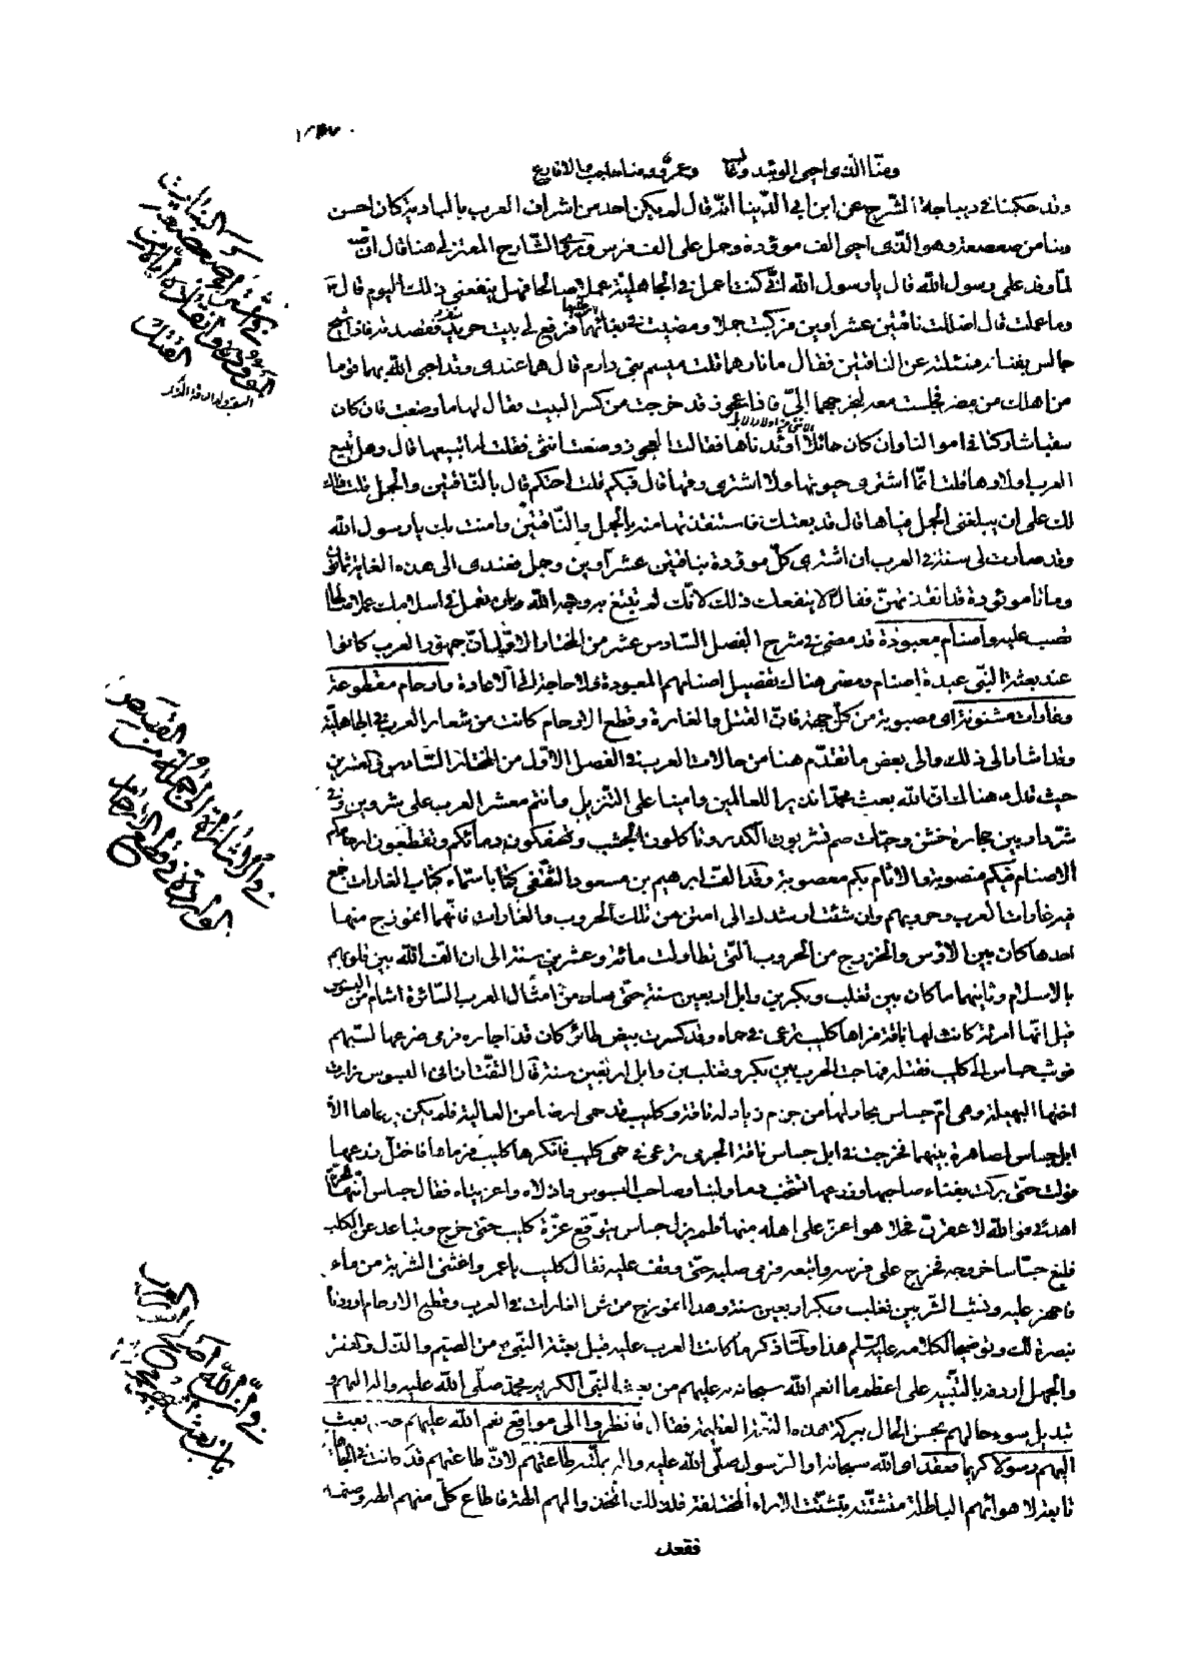 ومنا الذى احيى الوئيد وغالب وعمرو ومنا حاجب والاقارع
وقد حكينا فى ديباجة الشرح عن ابن ابى الدنيا انه قال لم يكن احد من اشراف العرب بالبادية كان احسن
دينا من صعصعة وهو الذى احيى الف موؤدة وحمل على الف فرس وروى الشارح المعتزلى هنا قال ان صعصعة
لما وفد على رسول الله قال يا رسول الله انى كنت اعمل فى الجاهلية عملا صالحا فهل ينفعنى ذلك اليوم قال
وما عملت قال اضللت ناقتين عشراوين فركبت جملا ومضيت فى بغائهما فرفع لى بيت حريد فقصدته فاذا شيخ
جالس بفنائه فسئلته عن الناقتين فقال ما نارهما قلت ميسم بنى دارم قال هما عندى وقد احيى الله بهما قوما
من اهلك من مضر فجلست معه ليخرجهما الىّ فاذا عجوز قد خرجت من كسر البيت فقال لها ما وضعت فان كان
سقبا شاركنا فى اموالنا وان كان حائلا وأدناها فقالت العجوز وضعت انثى فقلت له اتبيعها قال وهل تبيع
العرب اولادها قلت انما اشترى حيوتها ولا اشترى رقها قال فبكم قلت احتكم قال بالناقتين والجمل قلت ذاك
لك على ان يبلغنى الجمل واياها قال قد بعتك فاستنقذتها منه بالجمل والناقتين وامنت بك يا رسول الله
وقد صارت لى سنة فى العرب ان اشترى كل موؤدة بناقتين عشراوين وجمل فعندى الى هذه الغاية ثمانون
ومأتا موئودة قد انقذتهن فقال لا ينفعك ذلك لانك لم تبتغ به وجه الله وان تعمل فى اسلامك عملا صالحا
تصب عليه واصنام معبودة قد مضى فى شرح الفصل السادس عشر من المختار الاول ان جمهور العرب كانوا
عند بعثة النبى عبدة اصنام ومضى هناك تفصيل اصنامهم المعبودة فلا حاجة الى الاعادة وارحام مقطوعة
وغارات مشنونة اى مصبوبة من كل جهة فان القتل والغارة وقطع الارحام كانت من شعار العرب فى الجاهلية
وقد اشار الى ذلك والى بعض ما تقدم هنا من حالات العرب فى الفصل الاول من المختار السادس والعشرين
حيث قال هنالك ان الله بعث محمدا نذيرا للعالمين وامينا على التنزيل وانتم معشر العرب على شر دين وفى
شر دار بين حجارة خشن وحيات صم تشربون الكدر وتأكلون الجشب وتسفكون دمائكم وتقطعون ارحامكم
الاصنام فيكم منصوبة والاثام بكم معصوبة وقد الف ابرهيم بن مسعود الثقفى كتابا سماه كتاب الغارات جمع
فيه غارات العرب وحروبهم وان شئت ارشدك الى اثنتين من تلك الحروب والغارات فانهما انموزج منها
احدها كان بين الاوس والخزرج من الحروب التى تطاولت مائة وعشرين سنة الى ان الف الله بين قلوبهم
بالاسلام وثانيهما ما كان بين تغلب وبكر بن وايل اربعين سنة حتى صار من امثال العرب السائرة اشام من البسوس
قيل انها امرئة كانت لها ناقة فراها كليب ترعى فى حماه وقد كسرت بيض طائر كان قد اجاره فرمى ضرعها بسهم
فوثب جساس الى كليب فقتله فهاجت الحرب بين بكر وتغلب بن وايل اربعين سنة قال التفتازانى البسوس زارت
اختها الهيلة وهى ام جساس بجار لها من جرم ذياد له ناقة وكليب قد حمى ارضا من العالية فلم يكن يرعاها الا
ابل جساس لمصاهرة بينهما فخرجت فى ابل جساس ناقة الجرمى ترعى فى حمى كليب فانكرها كليب فرماها فاختل ضرعها
فولت حتى بركت بفناء صاحبها وضرعها تشخب دما ولبنا وصاحت البسوس واذلاه واغربتاه فقال جساس ايتها الحرة
اهدئى فو الله لاعقرن فحلا هو اعز على اهله منها فلم يزل جساس يتوقع غرة كليب حتى خرج وتباعد عن الكلب
فبلغ جساسا خروجه فخرج على فرسه واتبعه فرمى صلبه حتى وقف عليه فقال كليب يا عمرو اغثنى الشربة من ماء
فاجهز عليه ونشب الشر بين تغلب وبكر اربعين سنة وهذا انموزج من شن الغارات فى العرب وقطع الارحام اوردنا
تبصرة لك وتوضيحا لكلامه عليه السلم هذا ولما ذكر ما كانت العرب عليه قبل بعثة النبى من الضيم والذل والفقر
والجهل اردفه بالتنبيه على اعظم ما انعم الله سبحانه به عليهم من بعث النبى الكريم محمد صلى الله عليه واله اليهم و
تبديل سوء حالهم بحسن الحال ببركة هذه النعمة العظيمة فقال فانظروا الى مواقع نعم الله عليهم حين بعث
اليهم رسولا كريما فعقد اى الله سبحانه او الرسول صلى الله عليه واله بملته طاعتهم لان طاعتهم قد كانت فى الجاهلية
تابعة لاهوائهم الباطلة متشتتة بتشتت الاراء المختلفة فلذلك اتخذوا لهم الهة فاطاع كل منهم الهه وصنمه
فعقد